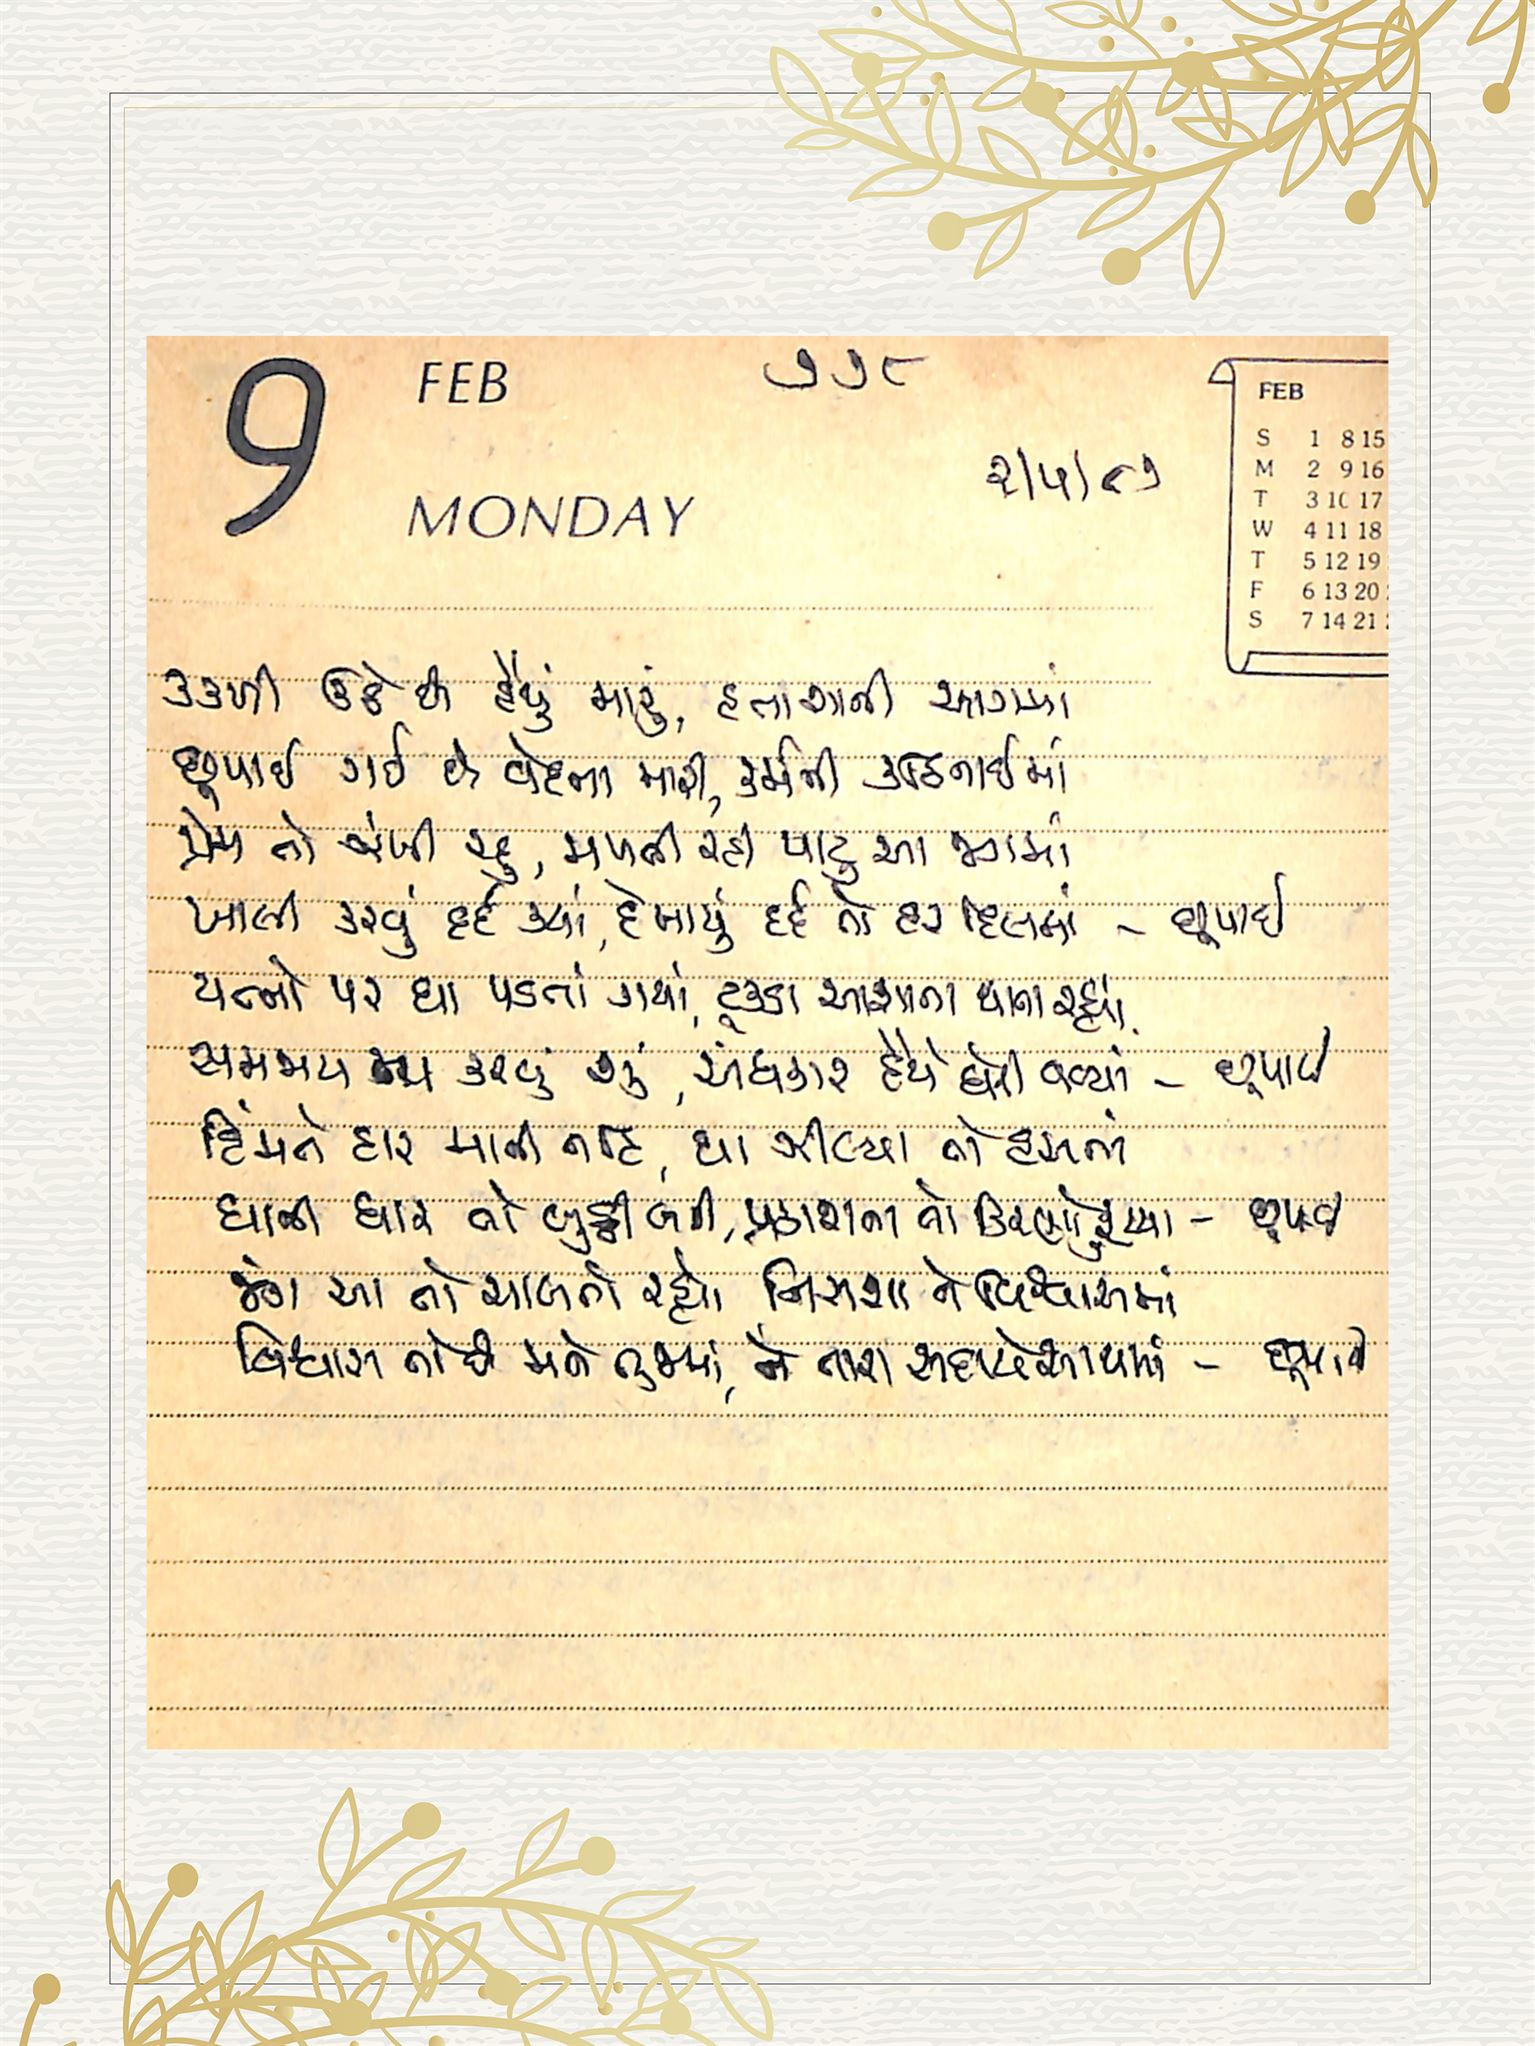 9 FEB ૭૭૮
MONDAY ૨/૫/૮૭
FEB
S 1 8 15
M 2 9 16
T 3 10 17
W 4 11 18
T 5 12 19
F 6 13 20
S 7 14 21
કકળી ઊઠે છે હૈયું મારું, હતાશાની આગમાં
છૂપાઈ ગઈ છે વેદના મારી, કર્મની કઠિનાઈમાં
પ્રેમ તો ઝંખી રહુ, મળતી રહી પાટુ આ જગમાં
ખાલી કરવું દર્દ ક્યાં, દેખાયું દર્દ તો હર દિલમાં - છૂપાઈ
યત્નો પર ઘા પડતાં ગયાં, ટૂકડા આશાના થાતા રહ્યાં
સમજાય ના કરવું શું, અંધકાર હૈયે ઘેરી વળ્યાં - છૂપાઈ
હિંમતે હાર માની નહિ, ઘા ઝીલ્યા તો હસતાં
ધાની ધાર તો બુઠ્ઠી બની, પ્રકાશના તો કિરણો ફૂટયા - છૂપાઈ
જંગ આ તો ચાલતો રહ્યો નિરાશા ને વિશ્વાસમાં
વિશ્વાસ તો છે મને તુજમાં, ને તારા સદાયે સાથમાં - છૂપાઈ